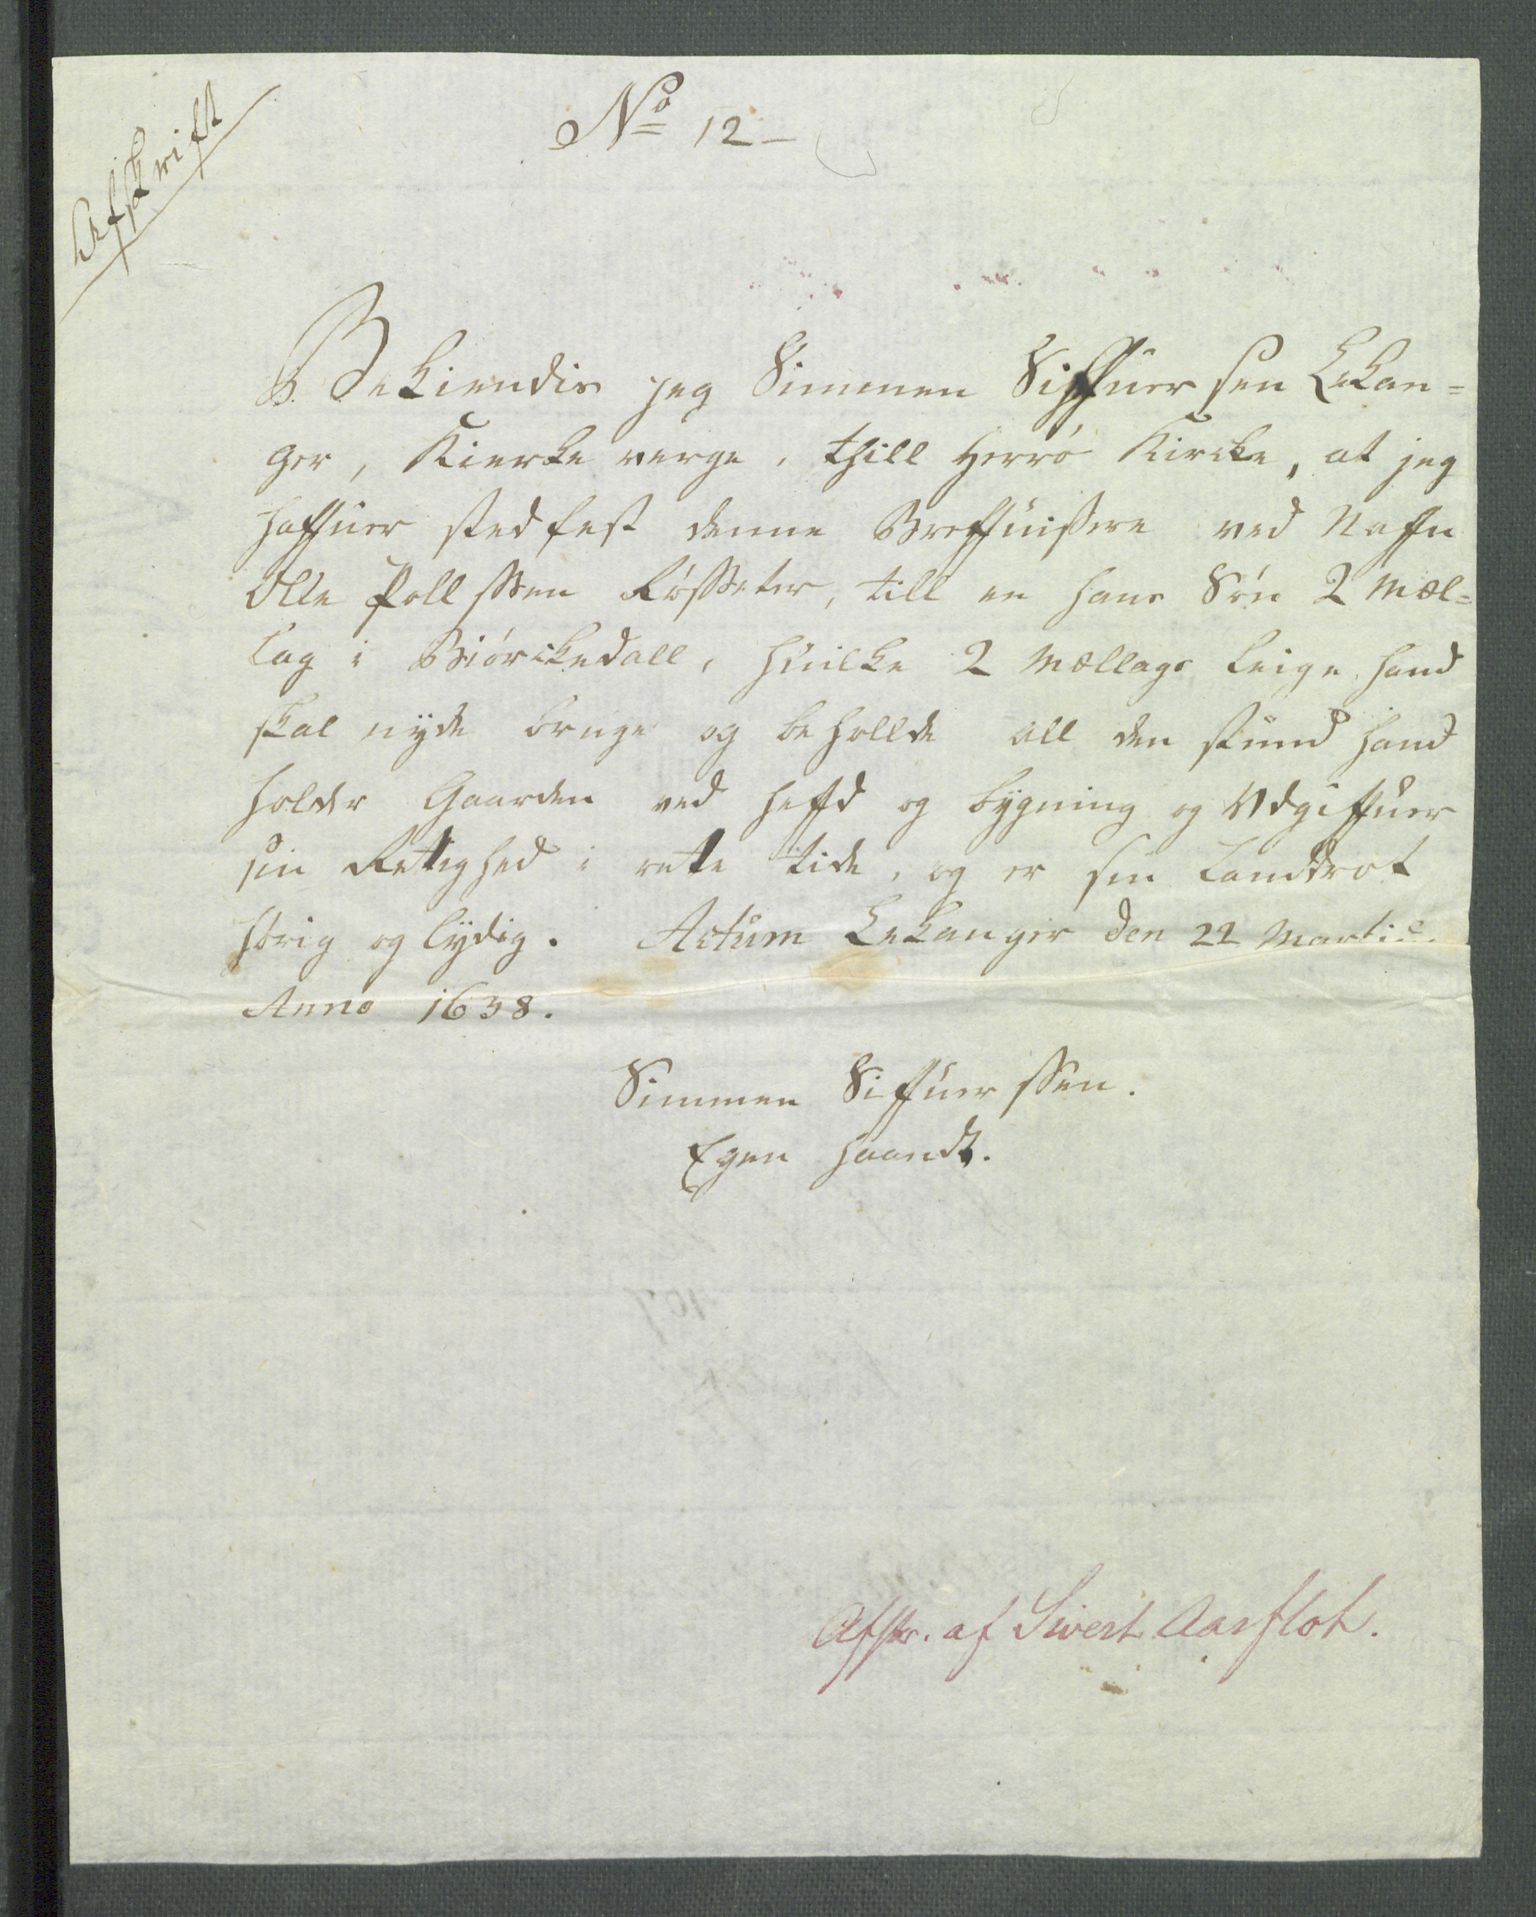 Afskrift
No 12
Bekiendis jeg Simmen Siffuersen Lekan=
ger, Kierke verge, thill Herrö Kircke, at jeg
haffuer stedfest denne Breffuissere ved Nafn
Olle Pollssen Rössetter, till en hans Sön 2 Mæl=
lag i Biörckedall, huilke 2 Mællags leige hand
skal nyde bruge og beholde all den stund hand
holder Gaarden ved heffd og bygning og Udgiffuer
sin Rettighed i rette tide, og er sin Landdrot
hörig og lydig. Actum Lekanger den 22 Martii
Anno 1638.
Simmen Siffuerssen.
Egen haandt.
Afskr. af Sivert Aarflot.